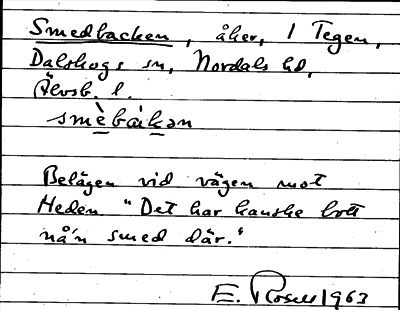 Smedbacken, åker, 1 Tegen,
Dalskogs sn, Nordals hd,
Älvsb. l.
smèbàkən
Belägen vid vägen mot
Heden "Det har kanske bott
nå'n smed där."
E. Rosell 1963